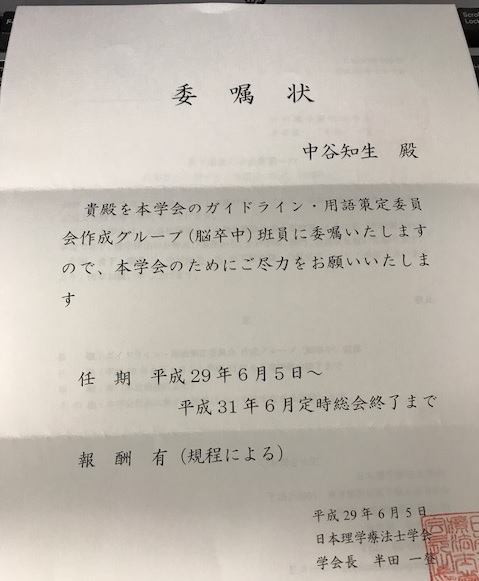 委嘱状
中谷知生　殿
貴殿を本学会のガイドライン・用語策定委員
会作成グループ(脳卒中)班員に委嘱いたします
ので、本学会のためにご尽力をお願いいたしま
す
任　期　平成29年6月5日～
平成31年6月定時総会終了まで
報　酬　有（規程による）
平成29年6月5日
日本理学療法士学会
学会長　半田 一登
Scroll
Lock